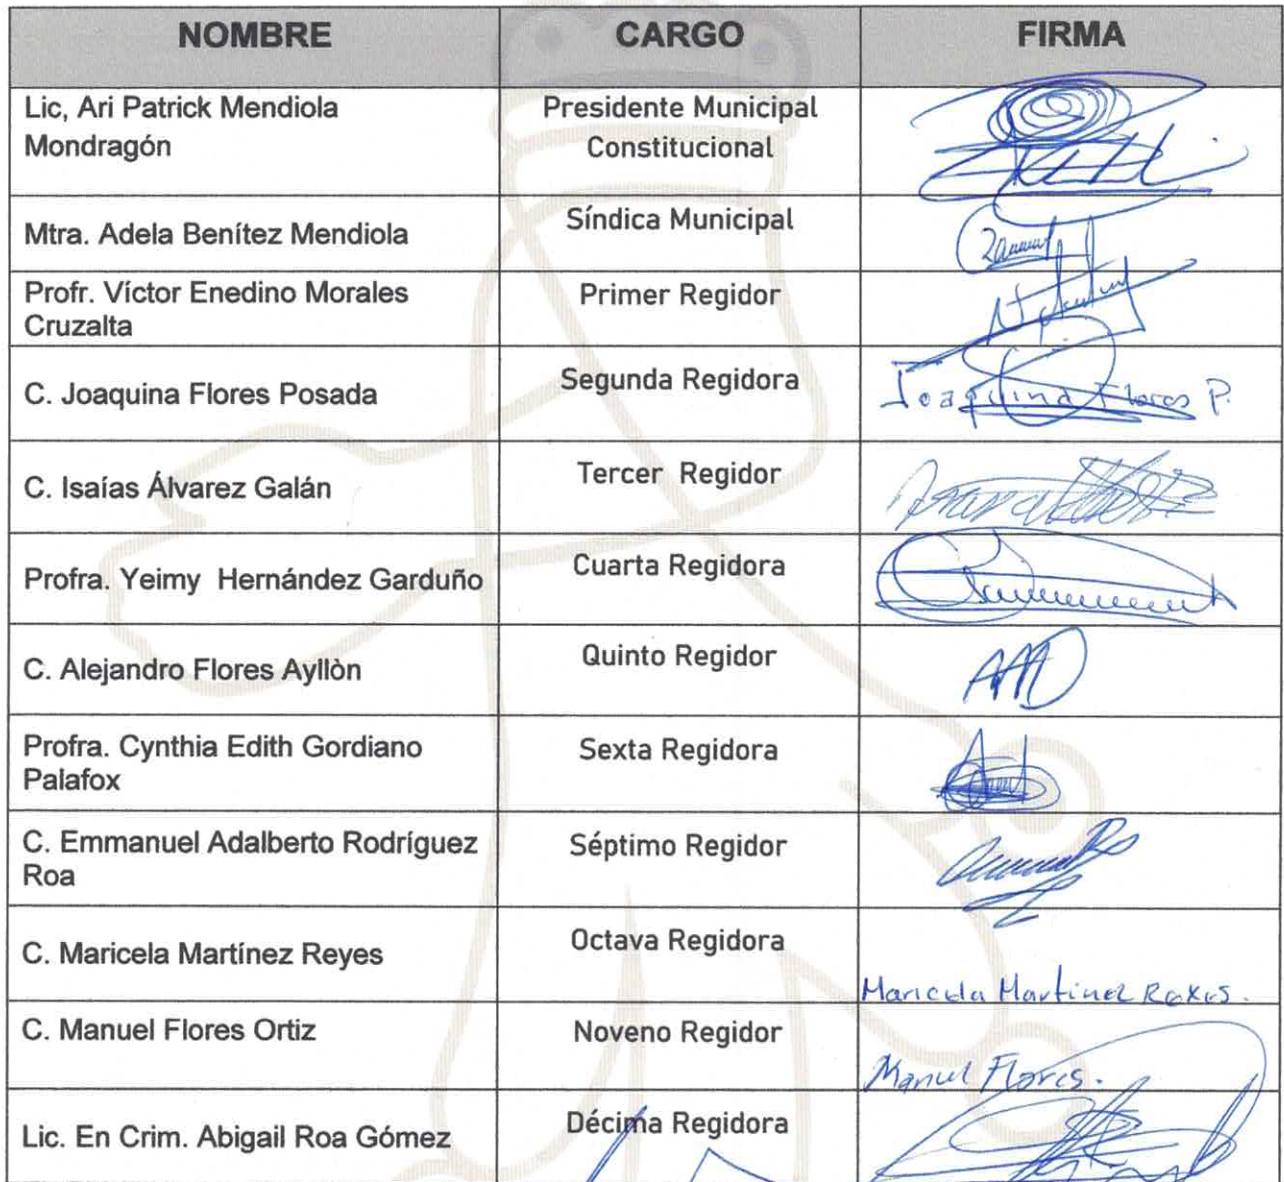 NOMBRE CARGO FIRMA
Lic, Ari Patrick Mendiola Presidente Municipal
Mondragón Constitucional
Mtra. Adela Benítez Mendiola Síndica Municipal
Profr. Víctor Enedino Morales Primer Regidor
Cruzalta
C. Joaquina Flores Posada Segunda Regidora Joaquina Flores P.
C. Isaías Álvarez Galán Tercer Regidor
Profra. Yeimy Hernández Garduño Cuarta Regidora
C. Alejandro Flores Ayllòn Quinto Regidor
Profra. Cynthia Edith Gordiano Sexta Regidora
Palafox
C. Emmanuel Adalberto Rodríguez Séptimo Regidor
Roa
C. Maricela Martínez Reyes Octava Regidora Maricela Martinez Reyes.
C. Manuel Flores Ortiz Noveno Regidor Manuel Flores.
Lic. En Crim. Abigail Roa Gómez Décima Regidora